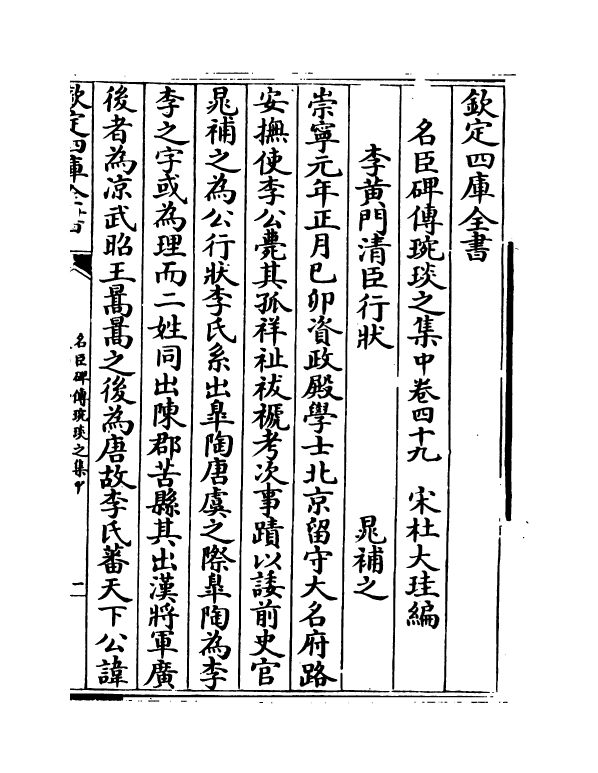 欽定四庫全書
名臣碑傳琬琰之集中卷四十九　宋杜大珪編
李黃門清臣行狀　晁補之
崇寧元年正月巳卯資政殿學士北京留守大名府路
安撫使李公薨其孤祥祉祓禠考次事蹟以諉前史官
晁補之為公行狀李氏系出臯陶唐虞之際臯陶為李
李之字或為理而二姓同出陳郡苦縣其出漢將軍廣
後者為凉武昭王暠暠之後為唐故李氏蕃天下公諱
欽定四庫全書
名臣碑傳琬琰之集中
二